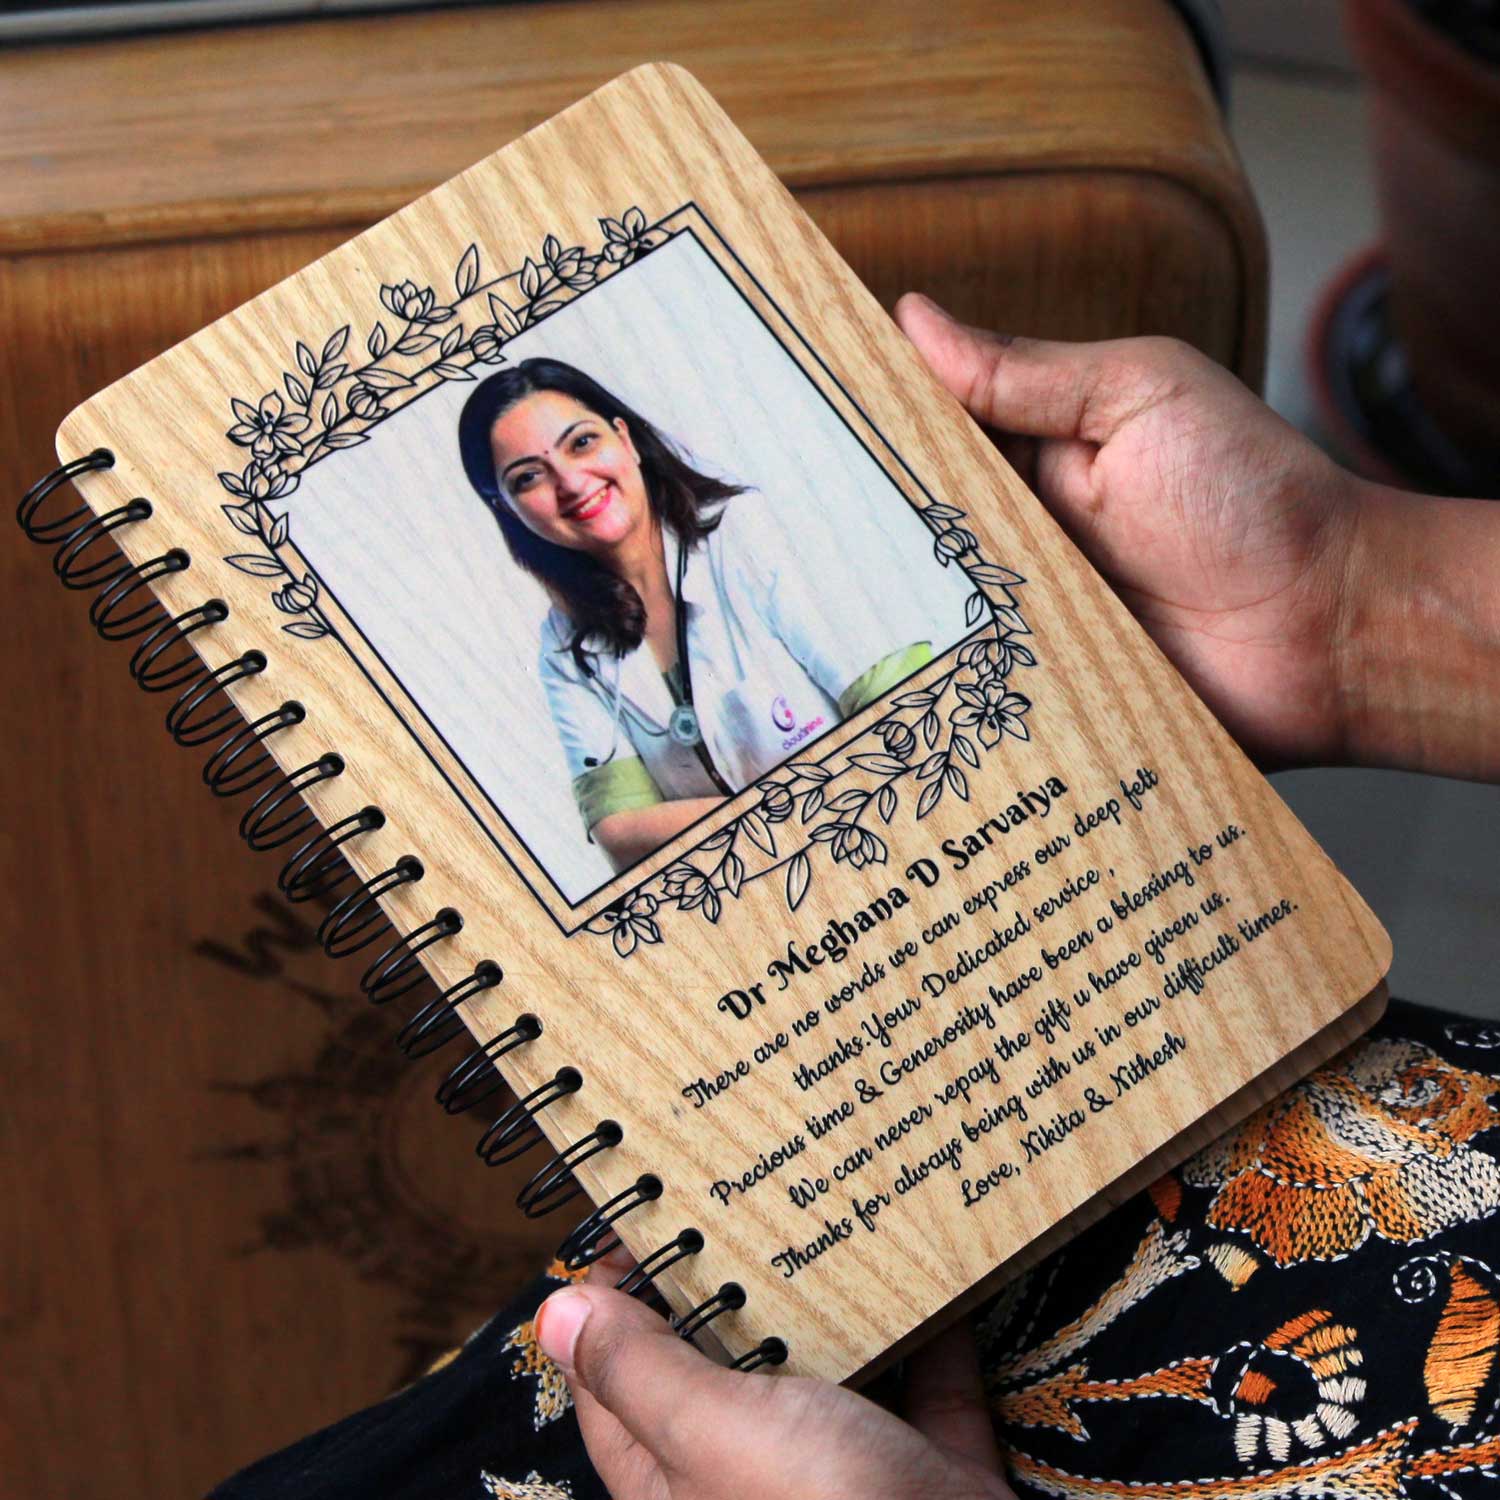 cloudnine
Dr Meghana D Sarvaiya
There are no words we can express our deep felt
thanks.Your Dedicated service ,
Precious time & Generosity have been a blessing to us.
We can never repay the gift u have given us.
Thanks for always being with us in our difficult times.
Love, Nikita & Nithesh